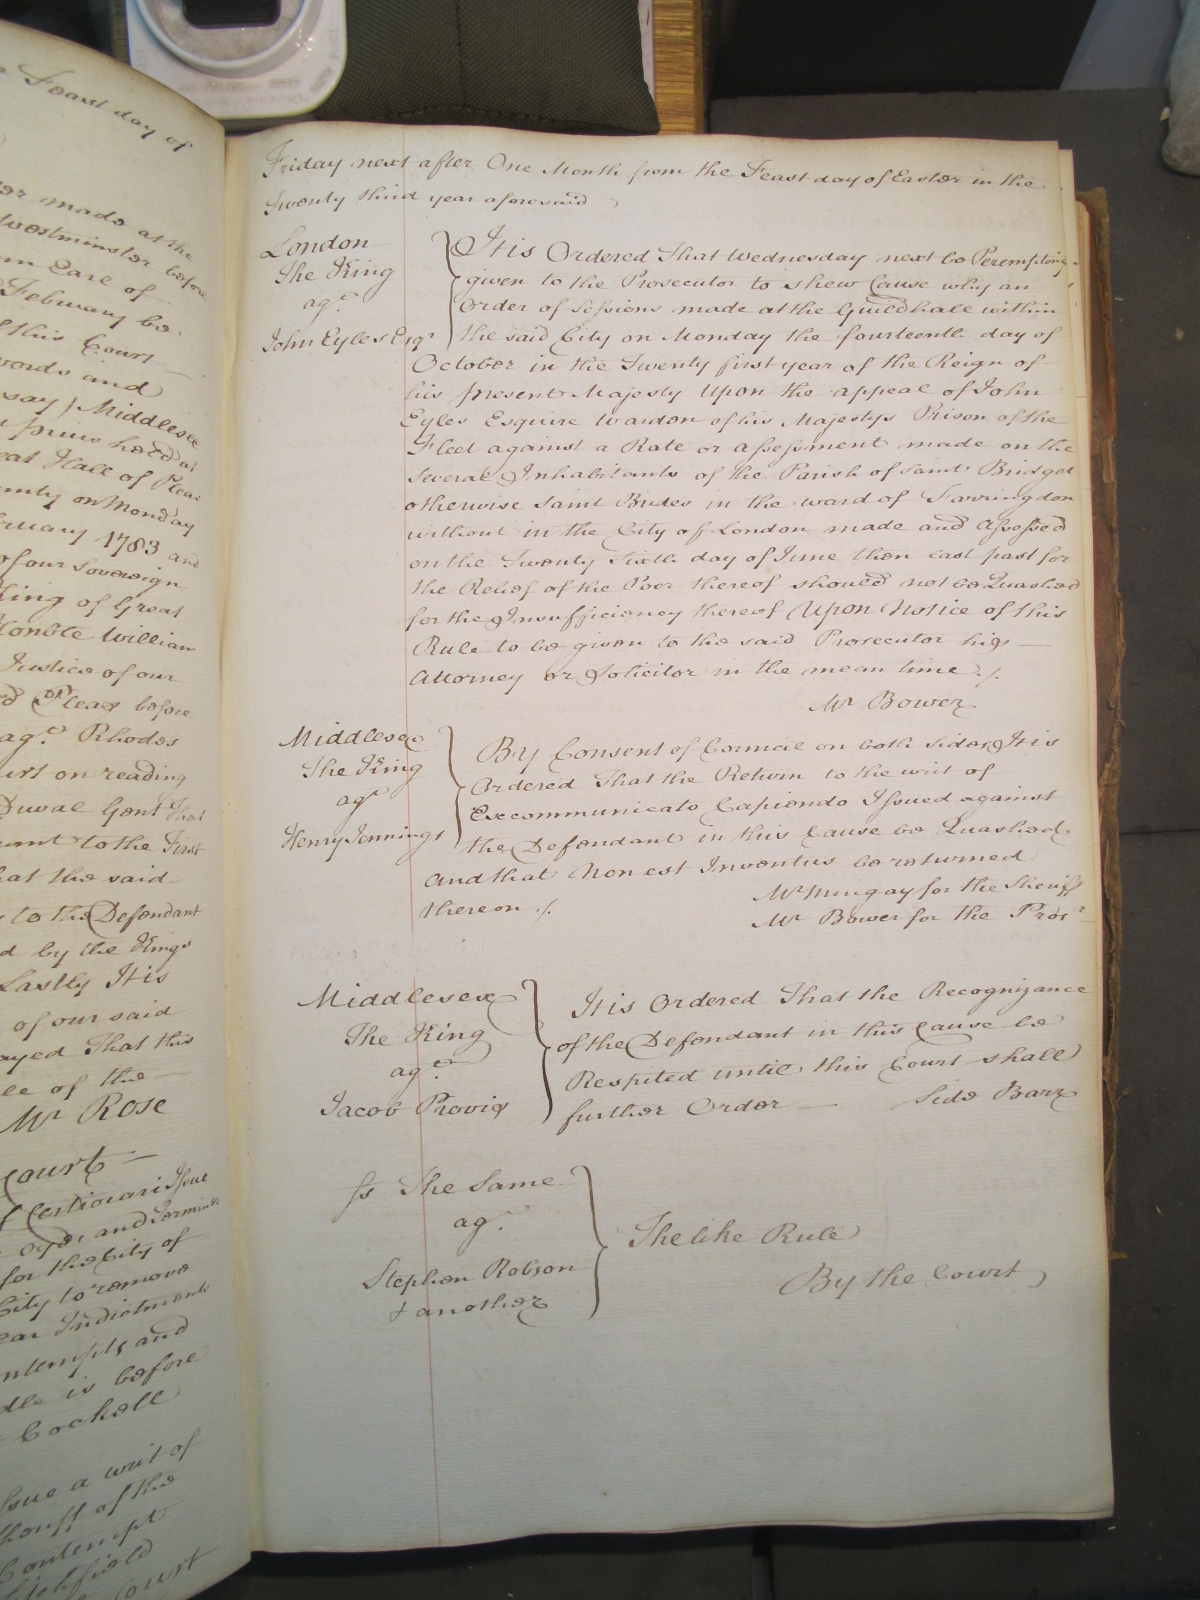 Feast day of
made at the
Westminster before
Earl of
February be
this Court
words and
say) Middlesex
prius held at
Hall of Pleas
on Monday
February 1783 and
of our Sovereign
King of Great
Honble William
Justice of our
Pleas before
agt. Rhodes
on reading
Duval Gent that
to the First
that the said
to the Defendant
by the Kings
Lastly It is
of our said
prayed That this
of the
Mr Rose
Court
Certiorari Issue
Oyer and Terminer
for the City of
City to remove
Indictments
and
is before
Cockell
Issue a writ of
of the
Contempt
Court
Friday next after One Month from the Feast day of Easter in the
Twenty third year aforesaid
London
The King
agt.
John Eyles Esqr
It is Ordered That Wednesday next be Peremptorily
given to the Prosecutor to shew Cause why an
Order of Sessions made at the Guildhall within
the said City on Monday the fourteenth day of
October in the Twenty first year of the Reign of
his present Majesty Upon the appeal of John
Eyles Esquire Warden of his Majestys Prison of the
Fleet against a Rate or assessment made on the
several Inhabitants of the Parish of Saint Bridget
otherwise Saint Brides in the ward of Farringdon
without in the City of London made and assessed
on the Twenty Sixth day of June then last past for
the Relief of the Poor thereof should not be Quashed
for the Insufficiency thereof Upon Notice of this
Rule to be given to the said Prosecutor his
Attorney or Solicitor in the mean time ./.
Mr Bower
Middlesex
The King
agt
Henry Jennings
By Consent of Council on both sides It is
Ordered That the Return to the writ of
Excommunicato Capiendo Issued against
the Defendant in this Cause be Quashed
and that Non est Inventus be returned
thereon ./.
Mr Mingay for the Sheriff
Mr Bower for the Prosr
Middlesex
The King
agt.
Jacob Provis
It is Ordered That the Recognizance
of the Defendant in this Cause be
Respited until this Court shall
further Order —
Side Bar
Ss The Same
agt.
Stephen Robson
& another
The like Rule
By the Court